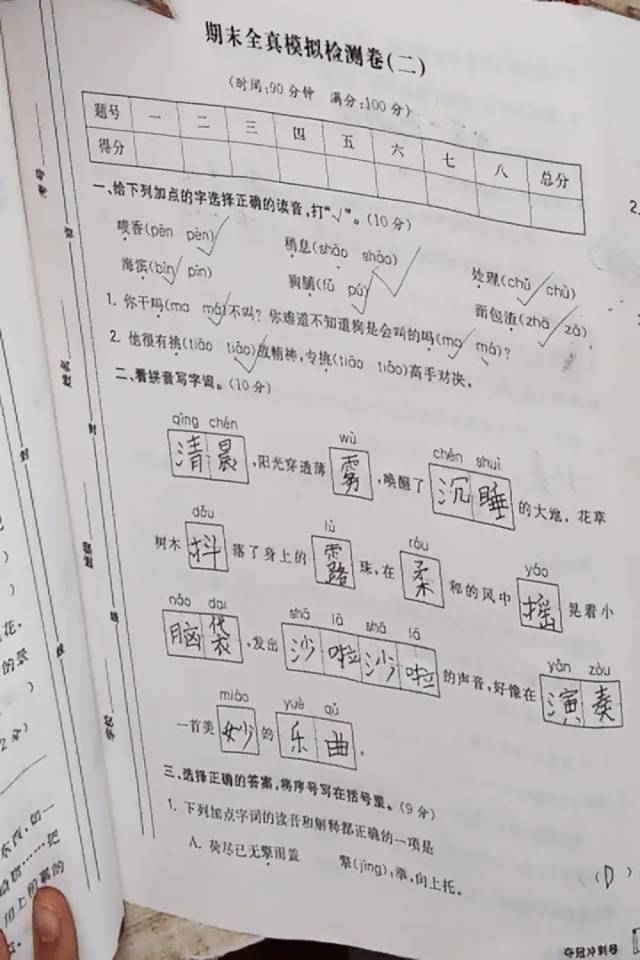 期末全真模拟检测卷(二)
(时间:90分钟 满分:100分)
题号 一 二 三 四 五 六 七 八 总分
得分
一、给下列加点的字选择正确的读音,打“√”。(10分)
喷香(pēn pèn) 稍息(shāo shào) 处理(chǔ chù)
海滨(bīn pīn) 胸脯(fǔ pú) 面包渣(zhā zǎ)
1. 你干吗(ma má)不叫?你难道不知道狗是会叫的吗(ma má)?
2. 他很有挑(tiāo tiǎo)战精神,专挑(tiāo tiǎo)高手对决。
二、看拼音写字词。(10分)
qīng chén wù chén shuì
清晨,阳光穿透薄雾,唤醒了沉睡的大地。花草
dǒu lù róu yáo
树木抖落了身上的露珠,在柔和的风中摇晃着小
nǎo dai shā lā shā lā yǎn zòu
脑袋,发出沙啦沙啦的声音,好像在演奏
miào yuè qǔ
一首美妙的乐曲。
三、选择正确的答案,将序号写在括号里。(9分)
1. 下列加点字词的读音和解释都正确的一项是 (D)
A. 荷尽已无擎雨盖 擎(jìng),举,向上托。
夺冠冲刺卷